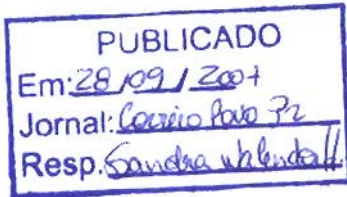 PUBLICADO
Em: 28/09/2007
Jornal: Correio Povo Pr
Resp. Sandra